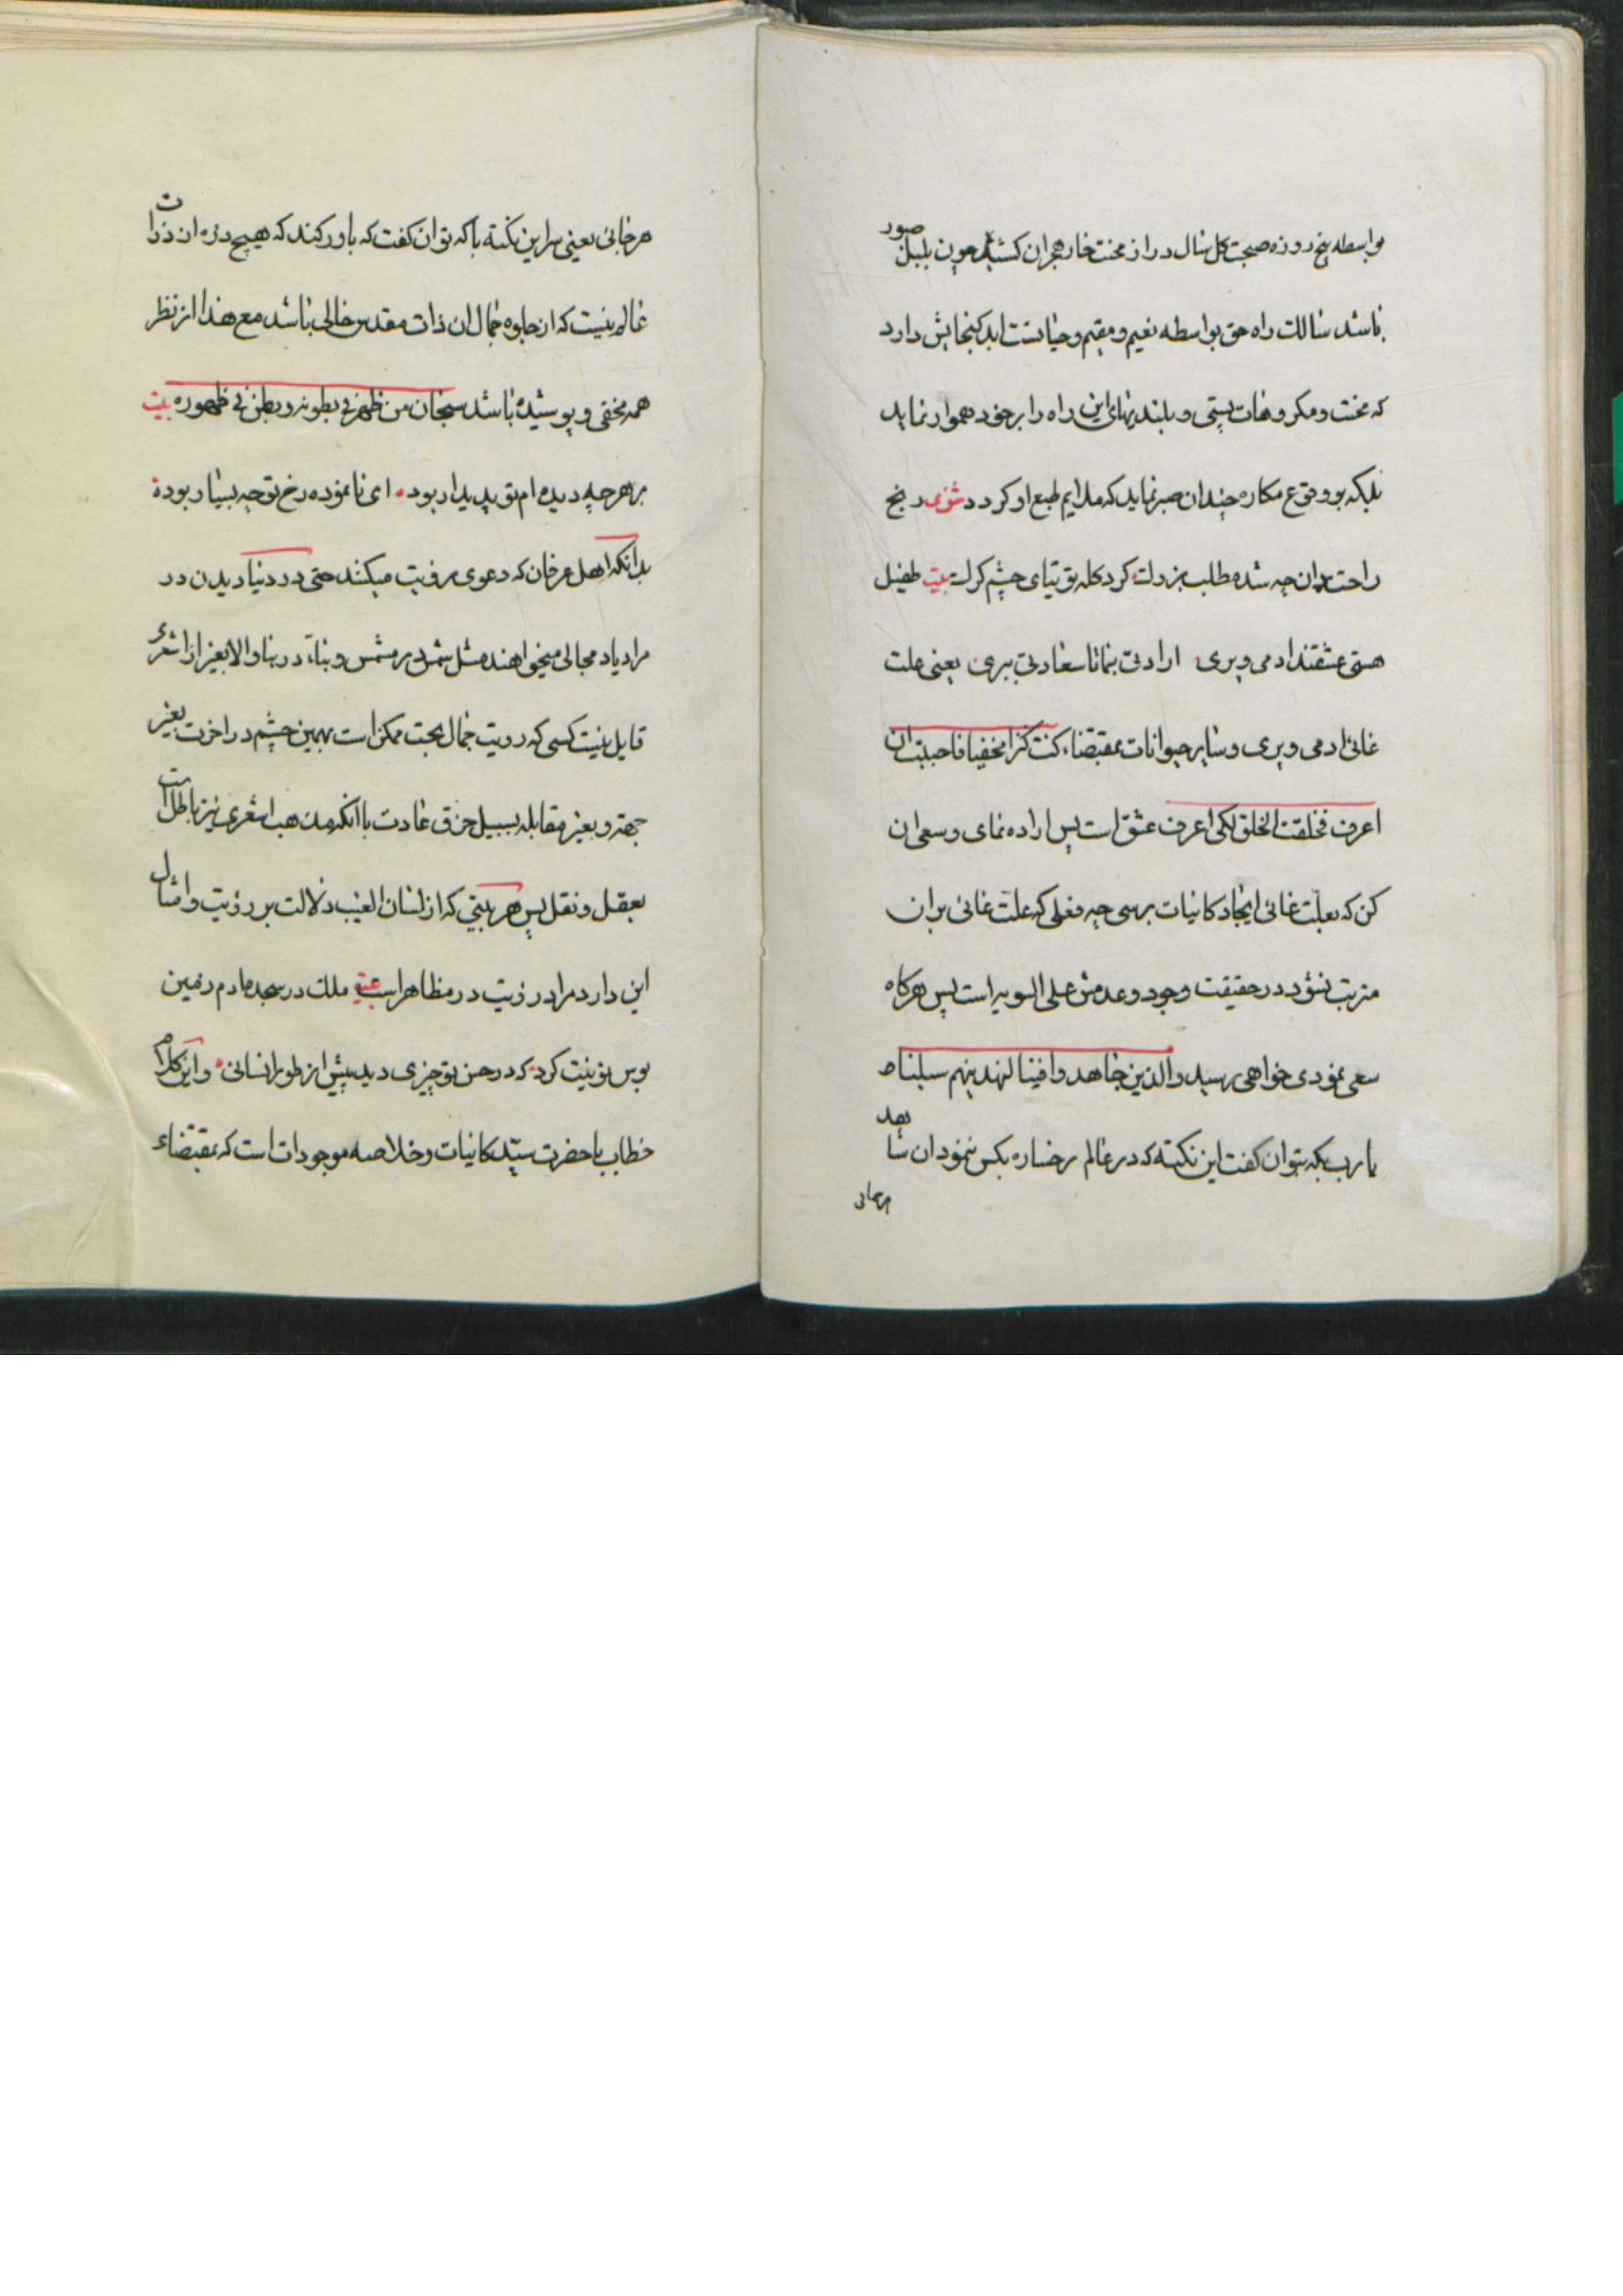 بواسطه پنج روزه صحبت گل سال دراز محنت خار هجران کشیده چون بلبل صبور
باشد سالک راه حق بواسطه نعیم مقیم و حیات ابد گنجایش دارد
که محنت و مکروهات پستی و بلندیهای این راه را بر خود هموار نماید
بلکه بوقوع مکاره چندان صبر نماید که ملایم طبع او گردد مثنوی رنج
راحت دان چه شد مطلب بزرگ گرد گله توتیای چشم گرگ بیت طفیل
هستی عشقند ادمی و پری ارادتی بنما تا سعادتی ببری یعنی علت
غائی ادمی و پری و سایر حیوانات بمقتضاء کنت کنزا مخفیا فاحببت ان
اعرف فخلقت الخلق لکی اعرف عشق است پس اراده نمای و سعی ان
کن که بعلت غائی ایجاد کاینات برسی چه فعلی که علت غائی بران
مترتب نشود در حقیقت وجود و عدمش علی السویه است پس هرکاه
سعی نمودی خواهی رسید والذین جاهدوا فینا لنهدینهم سبلنا
یارب بکه بتوان گفت این نکته که در عالم رخساره بکس ننمود ان شاهد
هرجائی
هرجائی یعنی سر این نکته با که توان گفت که باور کند که هیچ ذره از ذرات
عالم نیست که از جلوه جمال ان ذات مقدس خالی باشد مع هذا از نظر
همه مخفی و پوشیده باشد سبحان من ظهر فی بطونه و بطن فی ظهوره بیت
بر هرچه دیده ام تو پدیدار بوده ای نا نموده رخ تو چه بسیار بوده
بدانکه اهل عرفان که دعوی رویت میکنند حتی در دنیا دیدن در
مرایا و مجالی میخواهند مثل شمس در مشمس و بناء در بنا والا بغیر از اشعری
قایل نیست کسی که رویت جمال بحت ممکن است بهمین چشم در اخرت بغیر
جهة و بغیر مقابله بسبیل خرق عادت با انکه مذهب اشعری نیز باطل است
بعقل و نقل پس هر بیتی که از لسان الغیب دلالت بر رؤیت و امثال
این دارد مراد رؤیت در مظاهر است بیت ملک در سجده ادم زمین
بوس تو نیت کرد که در حسن تو چیزی دید بیش از طور انسانی و این کلام
خطاب با حضرت سید کاینات و خلاصه موجودات است که بمقتضاء